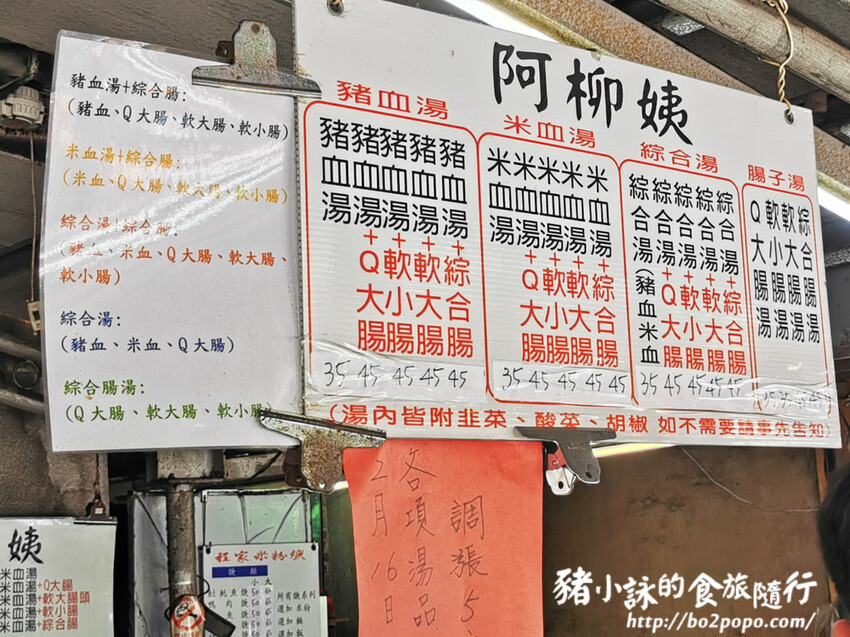 豬血湯+綜合腸:
(豬血、Q大腸、軟大腸、軟小腸)
米血湯+綜合腸:
(米血、Q大腸、軟大腸、軟小腸)
綜合湯+綜合腸:
(豬血、米血、Q大腸、軟大腸、
軟小腸)
綜合湯:
(豬血、米血、Q大腸)
綜合腸湯:
(Q大腸、軟大腸、軟小腸)
阿柳姨
豬血湯
豬血湯
豬血湯+Q大腸
豬血湯+軟小腸
豬血湯+軟大腸
豬血湯+綜合腸
35 45 45 45 45
米血湯
米血湯
米血湯+Q大腸
米血湯+軟小腸
米血湯+軟大腸
米血湯+綜合腸
35 45 45 45 45
綜合湯
綜合湯(豬血米血
綜合湯+Q大腸
綜合湯+軟小腸
綜合湯+軟大腸
綜合湯+綜合腸
35 45 45 45 45
腸子湯
Q大腸湯
軟小腸湯
軟大腸湯
綜合腸湯
(湯內皆附韭菜、酸菜、胡椒 如不需要請事先告知)
2月16日
各項湯品
調漲5
姨
米血湯
米血湯+Q大腸
米血湯+軟大腸頭
米血湯+軟小腸
米血湯+綜合腸
程家米粉焿
豬小詠的食旅隨行
http://bo2popo.com/